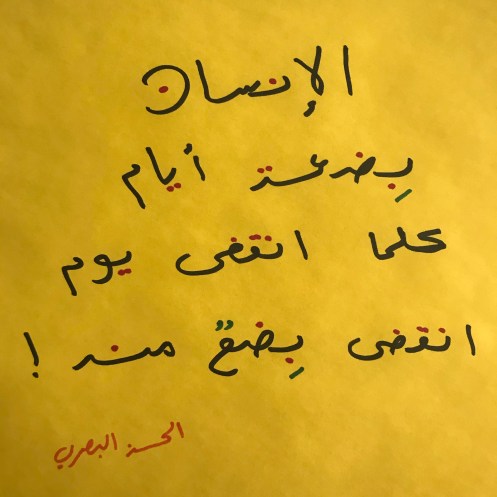 الإنسان
بِضعة أيام
كلما انقضى يوم
انقضى بِضعٌ منه !
الحسن البصري